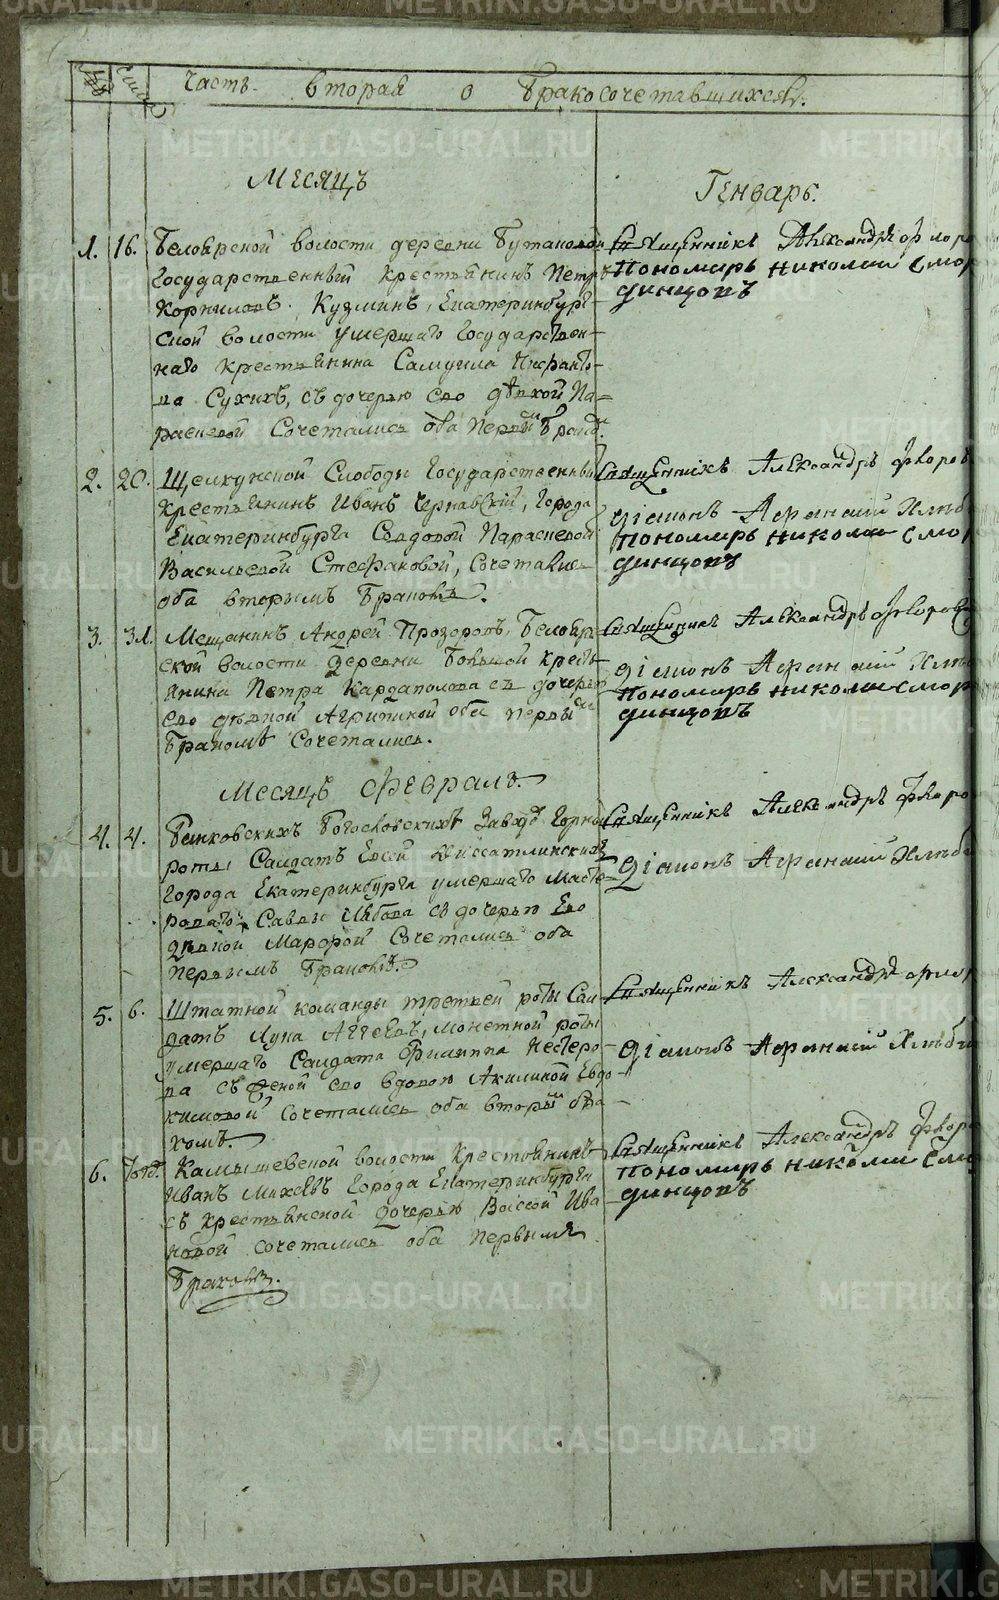 Часть вторая о бракосочетавшихся.
Месяцъ Генварь.
1. 16. Белоярской волости деревни
Государственный крестьянинъ Петръ
Корниловъ Кузминъ, Екатеринбург-
ской волости умершаго Государствен-
наго крестьянина Самуила
ва Сухихъ, съ дочерью ево девкой Па-
расковой Сочетались оба первым браком.
Священникъ Александръ Флоро
Пономарь Николай Смор
динцовъ
2. 20. Щелкунской Слободы Государственный
крестьянинъ Иванъ Чернавский, Города
Екатеринбурга Свдовой Парасковой
Васильевой Стефановой, Сочетались
оба вторымъ бракомъ.
Священникъ Александръ Флоров
Діаконъ Афанасий Хлѣб
Пономарь Николай Смор
динцовъ
3. 31. Мещанинъ Андрей Прозоровъ, Белояр-
ской волости деревни Большой кресть-
янина Петра Кардаполова съ дочерью
ево девкой Агрипиной оба первым
бракомъ Сочетались.
Священникъ Александръ Флоровс
Діаконъ Афанасий Хлѣб
Пономарь Николай Смор
динцовъ
Месяцъ Февраль.
4. 4. Банковскихъ Богословскихъ Заводъ Горной
роты Салдатъ
Города Екатеринбурга умершаго Масте-
роваго Саввы Глебова съ дочерью Ево
девкой Марфой Сочетались оба
первымъ бракомъ.
Священникъ Александръ Флоро
Діаконъ Афанасий Хлѣб
5. 6. Штатной команды третьей роты Сал
датъ Лука Агеевъ, монетной роты
умершаго Салдата Филиппа Нестеро-
ва съ женой ево вдовою Акилиной Евдо-
кимовой Сочетались оба вторым бра-
комъ.
Священникъ Александръ Флор
Діаконъ Афанасий Хлѣб
6. Камышевской волости Крестьянинъ
Иванъ Михеевъ Города Екатеринбурга
съ крестьянской дочерью Вассой Ива
новой сочетались оба первымъ
бракомъ.
Священникъ Александръ Флоро
Пономарь Николай Смо
динцовъ
METRIKI.GASO-URAL.RU